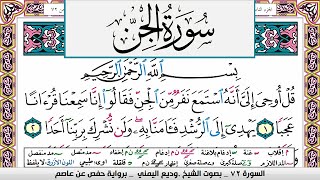 سُورَةُ الْجِنِّ
بِسْمِ اللَّهِ الرَّحْمَٰنِ الرَّحِيمِ
قُلْ أُوحِيَ إِلَىَّ أَنَّهُ اسْتَمَعَ نَفَرٌ مِّنَ الْجِنِّ فَقَالُوا إِنَّا سَمِعْنَا قُرْءَانًا
عَجَبًا ١ يَهْدِي إِلَى الرُّشْدِ فَـَٔامَنَّا بِهِ وَلَن نُّشْرِكَ بِرَبِّنَا أَحَدًا ٢
السورة ٧٢ _ بصوت الشيخ وديع اليمني _ برواية حفص عن عاصم